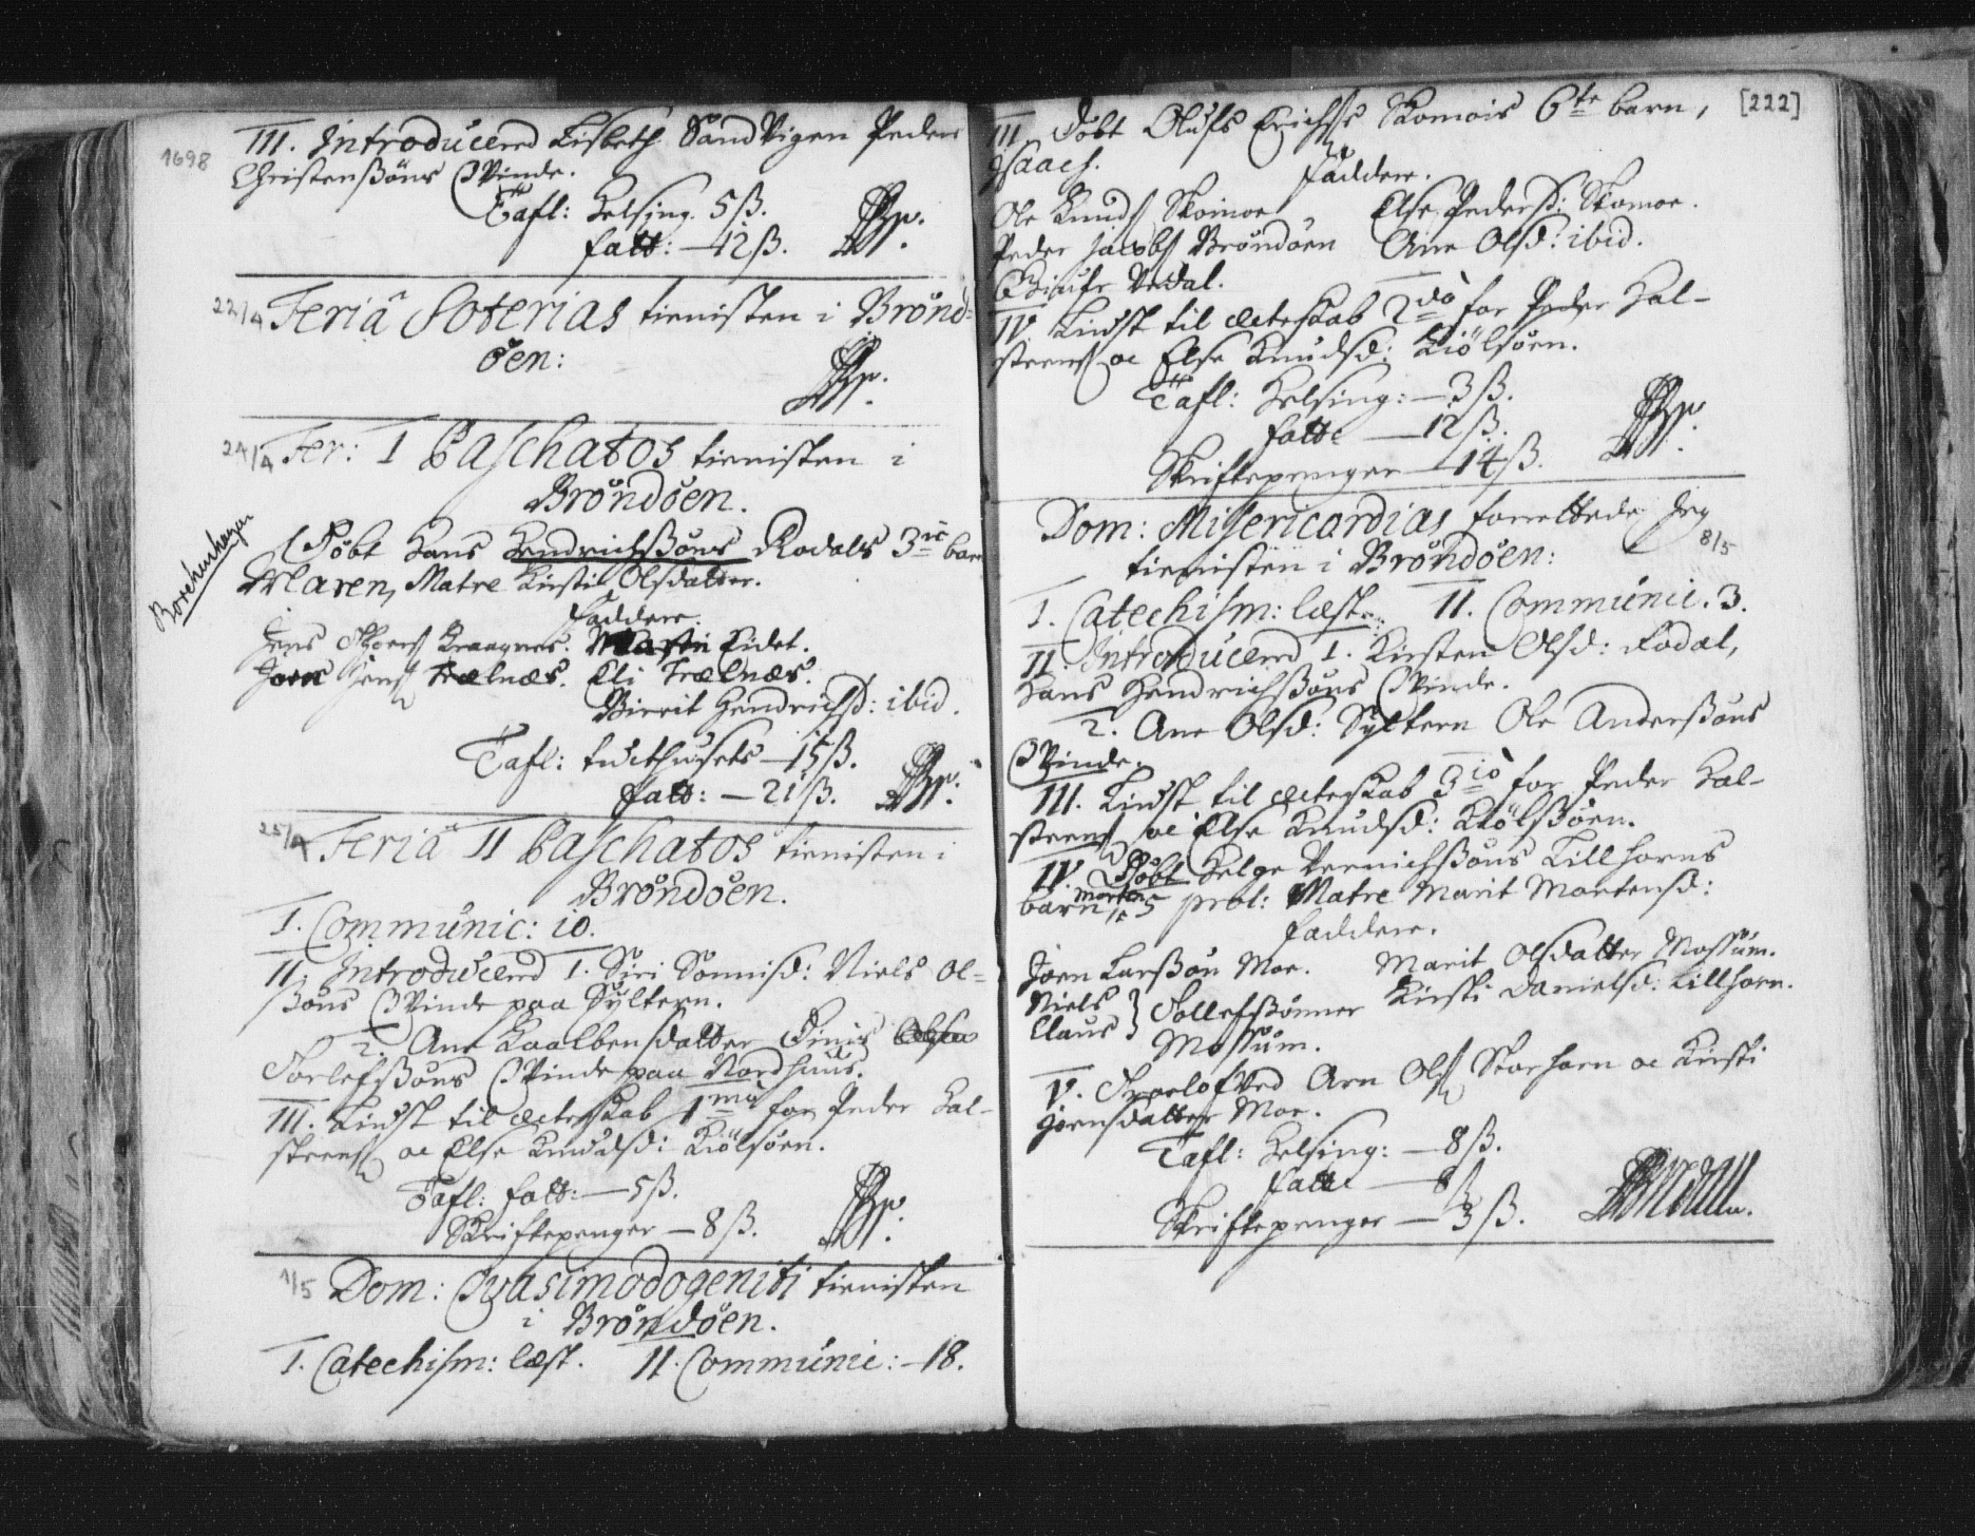 1698
III. Introducerd Lisbeth Sandvigen Peder
Christensßöns Qvinde.
Tafl: Helsing. 5 ß.
fatt: — 12 ß.
22/4 Feriâ Soterias tienisten i Brønd-
øen:
24/4 Fer: I Paschatos tienisten i
Brøndøen.
Døbt Hans Hendrichßöns Rodals 3ie barn
Maren, Matre Kirsti Olsdatter.
Faddere.
Jens Kraagnes. Eidet.
Jens Trælnæs. Eli Trælnæs.
Birrit Hendrichsd: ibid.
Tafl: tuchthusets — 15 ß.
fatt: — 21 ß.
25/4 Feriâ II Paschatos tienisten i
Brøndøen.
I. Communic: 10.
II. Introducerd 1. Siri Tønnisd: Niels Ol-
ßöns Qvinde paa Syltern.
2. Ane Kaalbensdatter Dinis
Torlefsßöns Qvinde paa Nordhuus.
III. Liust til ægteskab 1mo for Peder Hal-
steens oc Else Knudsd: Kiölsøen.
Tafl: fatt: — 5 ß.
Skriftepenger — 8 ß.
1/5 Dom: Qvasimodogeniti tienisten
i Brøndøen.
I. Catechism: læst. II. Communic: — 18.
[222]
III. Døbt Olufs Erichs Skomois 6te barn,
Isaach.
Faddere.
Ole Knuds Skomoe Else Pedersd: Skomoe.
Peder Jacobs Brøndøen Ane Olsd: ibid.
Vedal.
IV. Liust til ægteskab 2do for Peder Hal-
steens oc Else Knudsd: Kiölsøen.
Tafl: Helsing: — 3 ß.
fatt: — 12 ß.
Skriftepenger — 14 ß.
Dom: Misericordias forrettede Jeg
8/5
tienisten i Brøndøen:
I. Catechism: læst. II. Communic. 3.
II. Introducerd 1. Kirsten Olsd: Rodal,
Hans Hendrichßöns Qvinde.
2. Ane Olsd: Syltern Ole Anderßöns
Qvinde.
III. Liust til ægteskab 3io for Peder Hal-
steens oc Else Knudsd: Kiölßøen.
IV. Døbt Helge Lillhorns
Morten
barn 5 prol: Matre Marit Mortensd:
Faddere.
Joen Larßøn Moe. Marit Olsdatter Mossum.
Niels } Tollefsßønner Kirsti Danielsd: Lillhorn.
Claus } Mossum.
V. Troelofved Arn Ols Storhorn oc Kirsti
Joensdatter Moe.
Tafl: Helsing: — 8 ß.
fatt: — 8 ß
Skriftepenger — 3 ß.